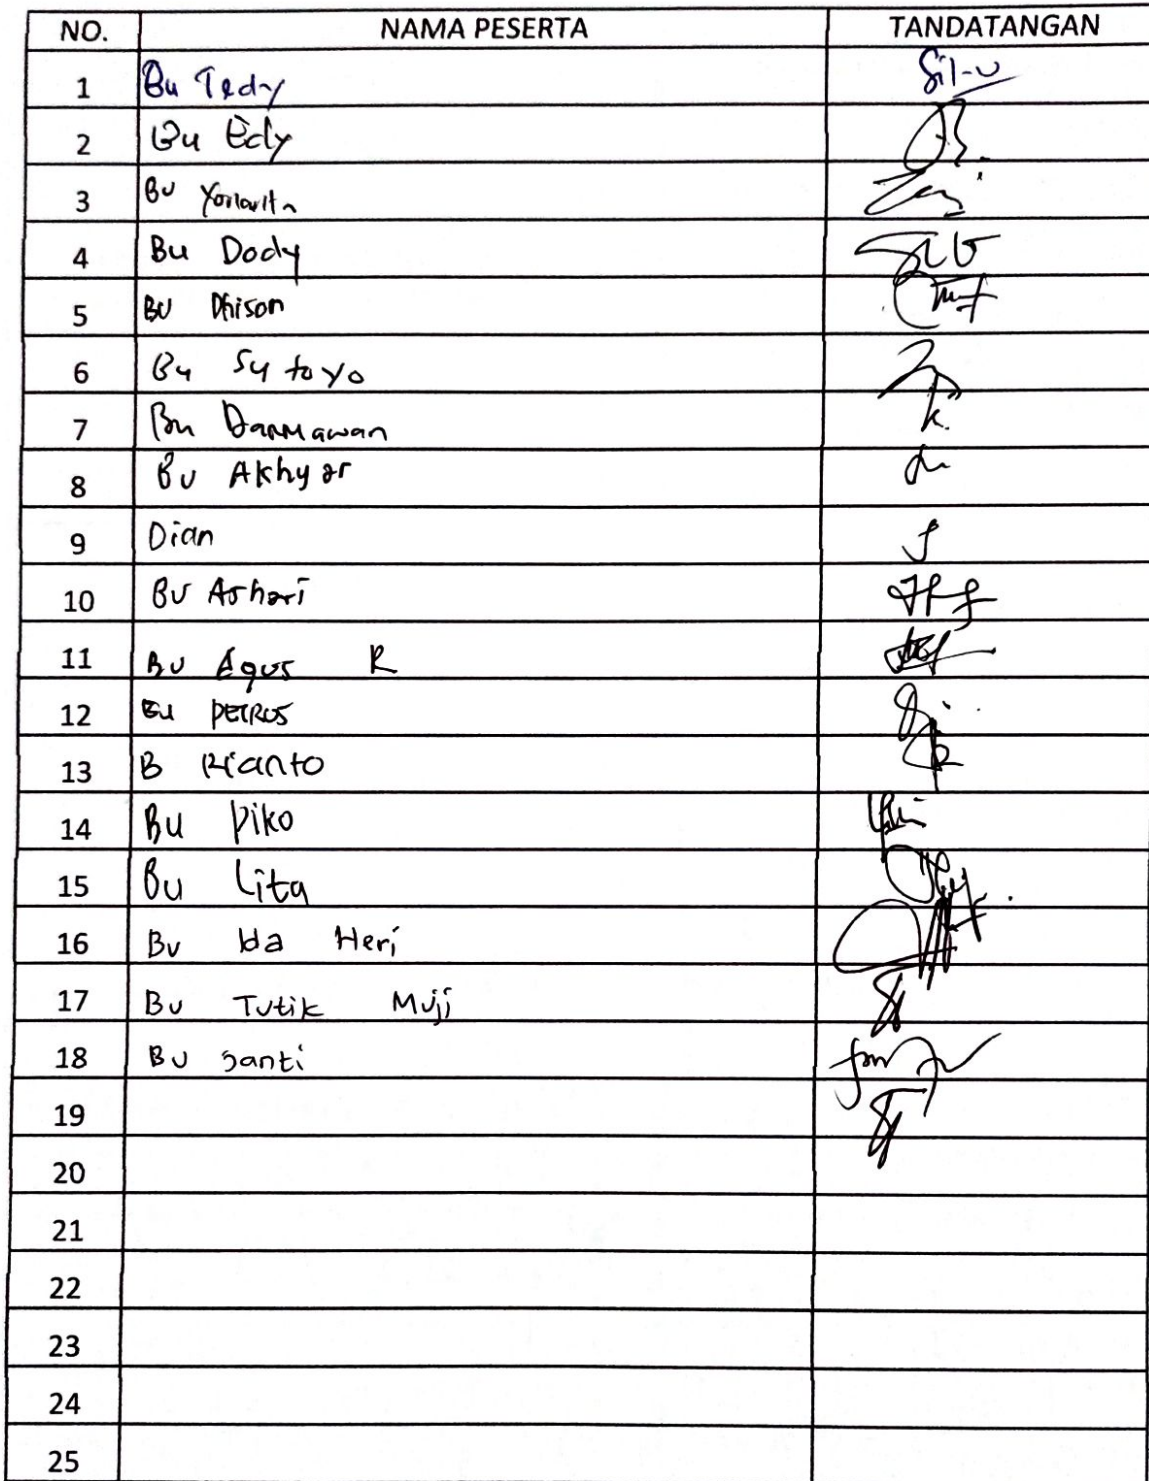 NO. NAMA PESERTA TANDATANGAN
1 Bu Tedy
2 Bu Edy
3 Bu
4 Bu Dody
5 Bu Dhison
6 Bu Sutoyo
7 Bu Darmawan
8 Bu Akhyar
9 Dian
10 Bu Ashari
11 Bu Agus R
12 Bu PETRUS
13 B Rianto
14 Bu Piko
15 Bu Lita
16 Bu Ida Heri
17 Bu Tutik Muji
18 Bu Santi
19
20
21
22
23
24
25